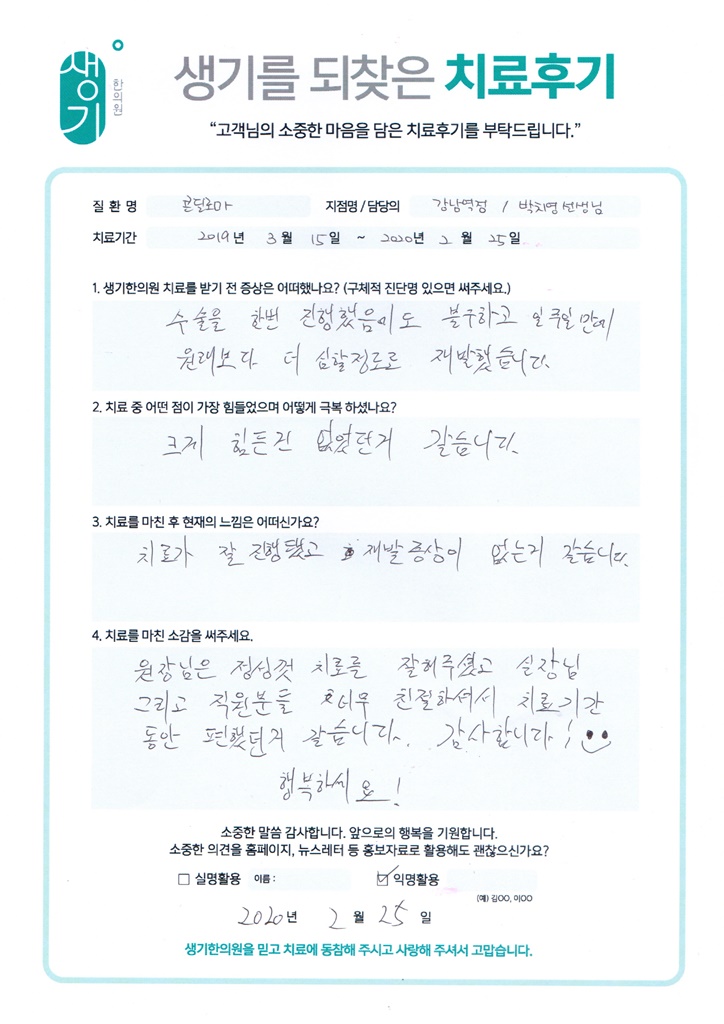 생기
한의원
생기를 되찾은 치료후기
“고객님의 소중한 마음을 담은 치료후기를 부탁드립니다.”
질 환 명 콘딜로마 지점명 / 담당의 강남역점 / 박치영 선생님
치료기간 2019년 3월 15일 ~ 2020년 2월 25일
1. 생기한의원 치료를 받기 전 증상은 어떠했나요? (구체적 진단명 있으면 써주세요.)
수술을 한번 진행했음에도 불구하고 일주일만에
원래보다 더 심할정도로 재발했습니다.
2. 치료 중 어떤 점이 가장 힘들었으며 어떻게 극복 하셨나요?
크게 힘든건 없었던거 같습니다.
3. 치료를 마친 후 현재의 느낌은 어떠신가요?
치료가 잘 진행됐고 재발증상이 없는거 같습니다.
4. 치료를 마친 소감을 써주세요.
원장님은 정성껏 치료를 잘해주셨고 실장님
그리고 직원분들 너무 친절하셔서 치료기간
동안 편했던거 같습니다. 감사합니다!
행복하세요!
소중한 말씀 감사합니다. 앞으로의 행복을 기원합니다.
소중한 의견을 홈페이지, 뉴스레터 등 홍보자료로 활용해도 괜찮으신가요?
□ 실명활용 이름 : ☑ 익명활용
(예) 김OO, 이OO
2020년 2월 25일
생기한의원을 믿고 치료에 동참해 주시고 사랑해 주셔서 고맙습니다.